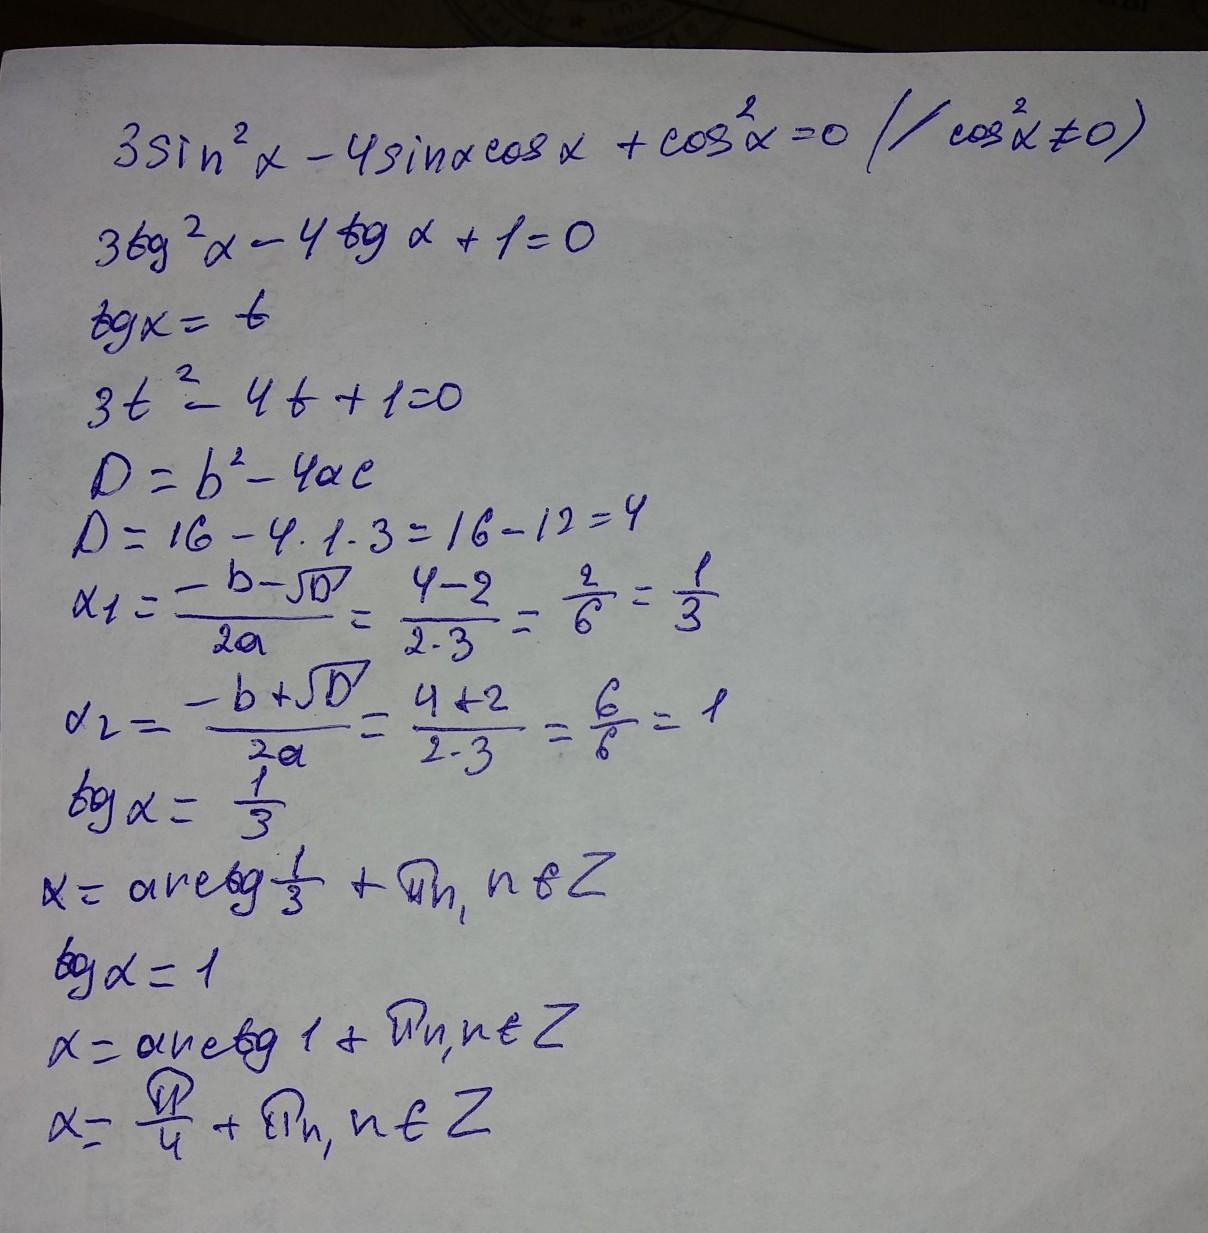 3sin²x - 4sinxcosx + cos²x = 0 (/ cos²x ≠ 0)
3tg²x - 4tgx + 1 = 0
tgx = t
3t² - 4t + 1 = 0
D = b² - 4ac
D = 16 - 4·1·3 = 16 - 12 = 4
x₁ = (-b - √D)/2a = (4-2)/(2·3) = 2/6 = 1/3
x₂ = (-b + √D)/2a = (4+2)/(2·3) = 6/6 = 1
tgx = 1/3
x = arctg 1/3 + πn, n ∈ Z
tgx = 1
x = arctg 1 + πn, n ∈ Z
x = π/4 + πn, n ∈ Z